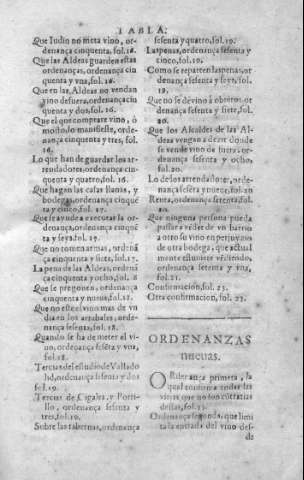 TABLA.
Que Iudio no meta vino, or-
denança cinquenta. fol.18.
Que las Aldeas guarden estas
ordenanças, ordenança cin
quenta y vna, fol.
Que en las Aldeas no vendan
vino de fuera, ordenança cin
quenta y dos, fol. 16.
Que el que comprare vino, ò
mosto, lo manifieste, orde-
nança cinquenta y tres, fol.
16.
Lo que han de guardar los arre-
dadores, ordenança cin-
quenta y quatro, fol. 16.
Que hagan las casas llanas, y
bodegas, ordenança cinquẽ
ta y cinco, fol. 17.
Que se ayude a executar la or-
denança, ordenança cinquẽ
ta y seys. fol. 17.
Que no tomen armas, ordenã
ça cinquenta y siete, fol. 17.
La pena de las Aldeas, ordenã
ça cinquenta y ocho, fol.
Que se pregonen, ordenança
cinquenta y nueue, fol.
Que no este el vino mas de vn
dia en los arrabales, orde-
nança sesenta, fol. 18.
Quando se ha de meter el vi-
no, ordenança sesẽta y vna,
fol. 18.
Tercias del estudio de Vallado
lid, ordenança sesenta y dos
fol. 19.
Tercias de Cigales, y Porti-
llo, ordenança sesenta y
tres, fol. 19.
Sobre las tabernas, ordenança
sesenta y quatro, fol. 19.
Las penas, ordenança sesenta y
cinco, fol. 19.
Como se reparten las penas, or
denança sesenta y seys, fol.
19.
Que no se dè vino à obreros, or
denança sesenta y siete, fol.
20.
Que los Alcaldes de las Al-
deas vengan a dezir donde
se vende vino de fuera, or-
denança sesenta y ocho,
fol. 20.
Lo de los arrendadores, orde-
nança sesẽta y nueue, fol. 20
Renta, ordenança setenta, fol.
20.
Que ninguna persona pueda
passar a vẽder de vn barrio
a otro su vino en perjuyzio
de otra bodega, que actual
mente estuuiere vẽdiendo,
ordenança setenta y vna,
fol. 21.
Confirmacion, fol. 23.
Otra confirmacion, fol. 23.
ORDENANZAS
nueuas.
Ordenança primera, la
qual contiene todas las
viñas que no son
destas, fol.
Ordenança segunda, que limi
ta la entrada del vino des-
de